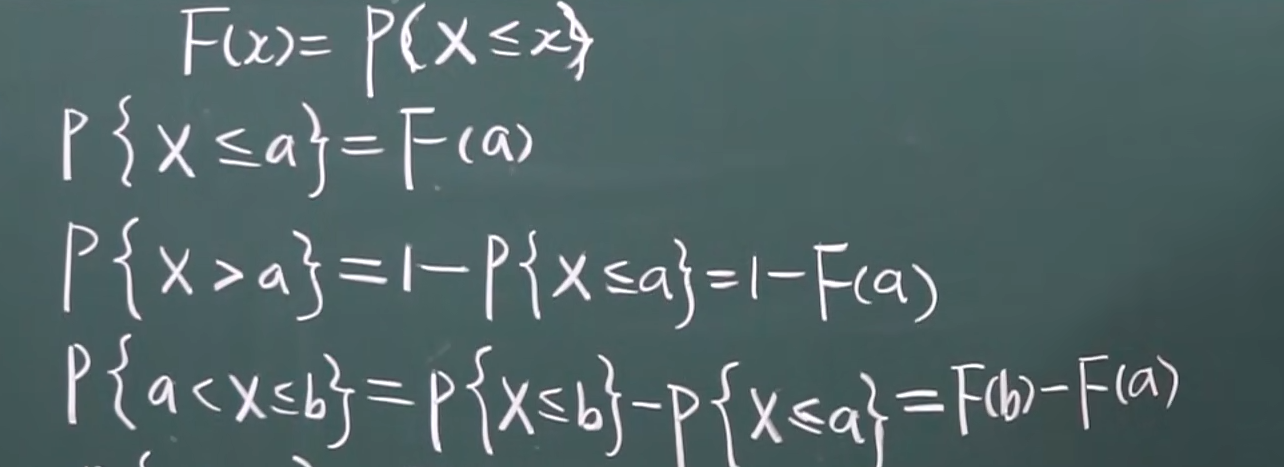 F(x)= P{X≤x}
P{X≤a}=F(a)
P{X>a}=1-P{X≤a}=1-F(a)
P{a<X≤b}=P{X≤b}-P{X≤a}=F(b)-F(a)